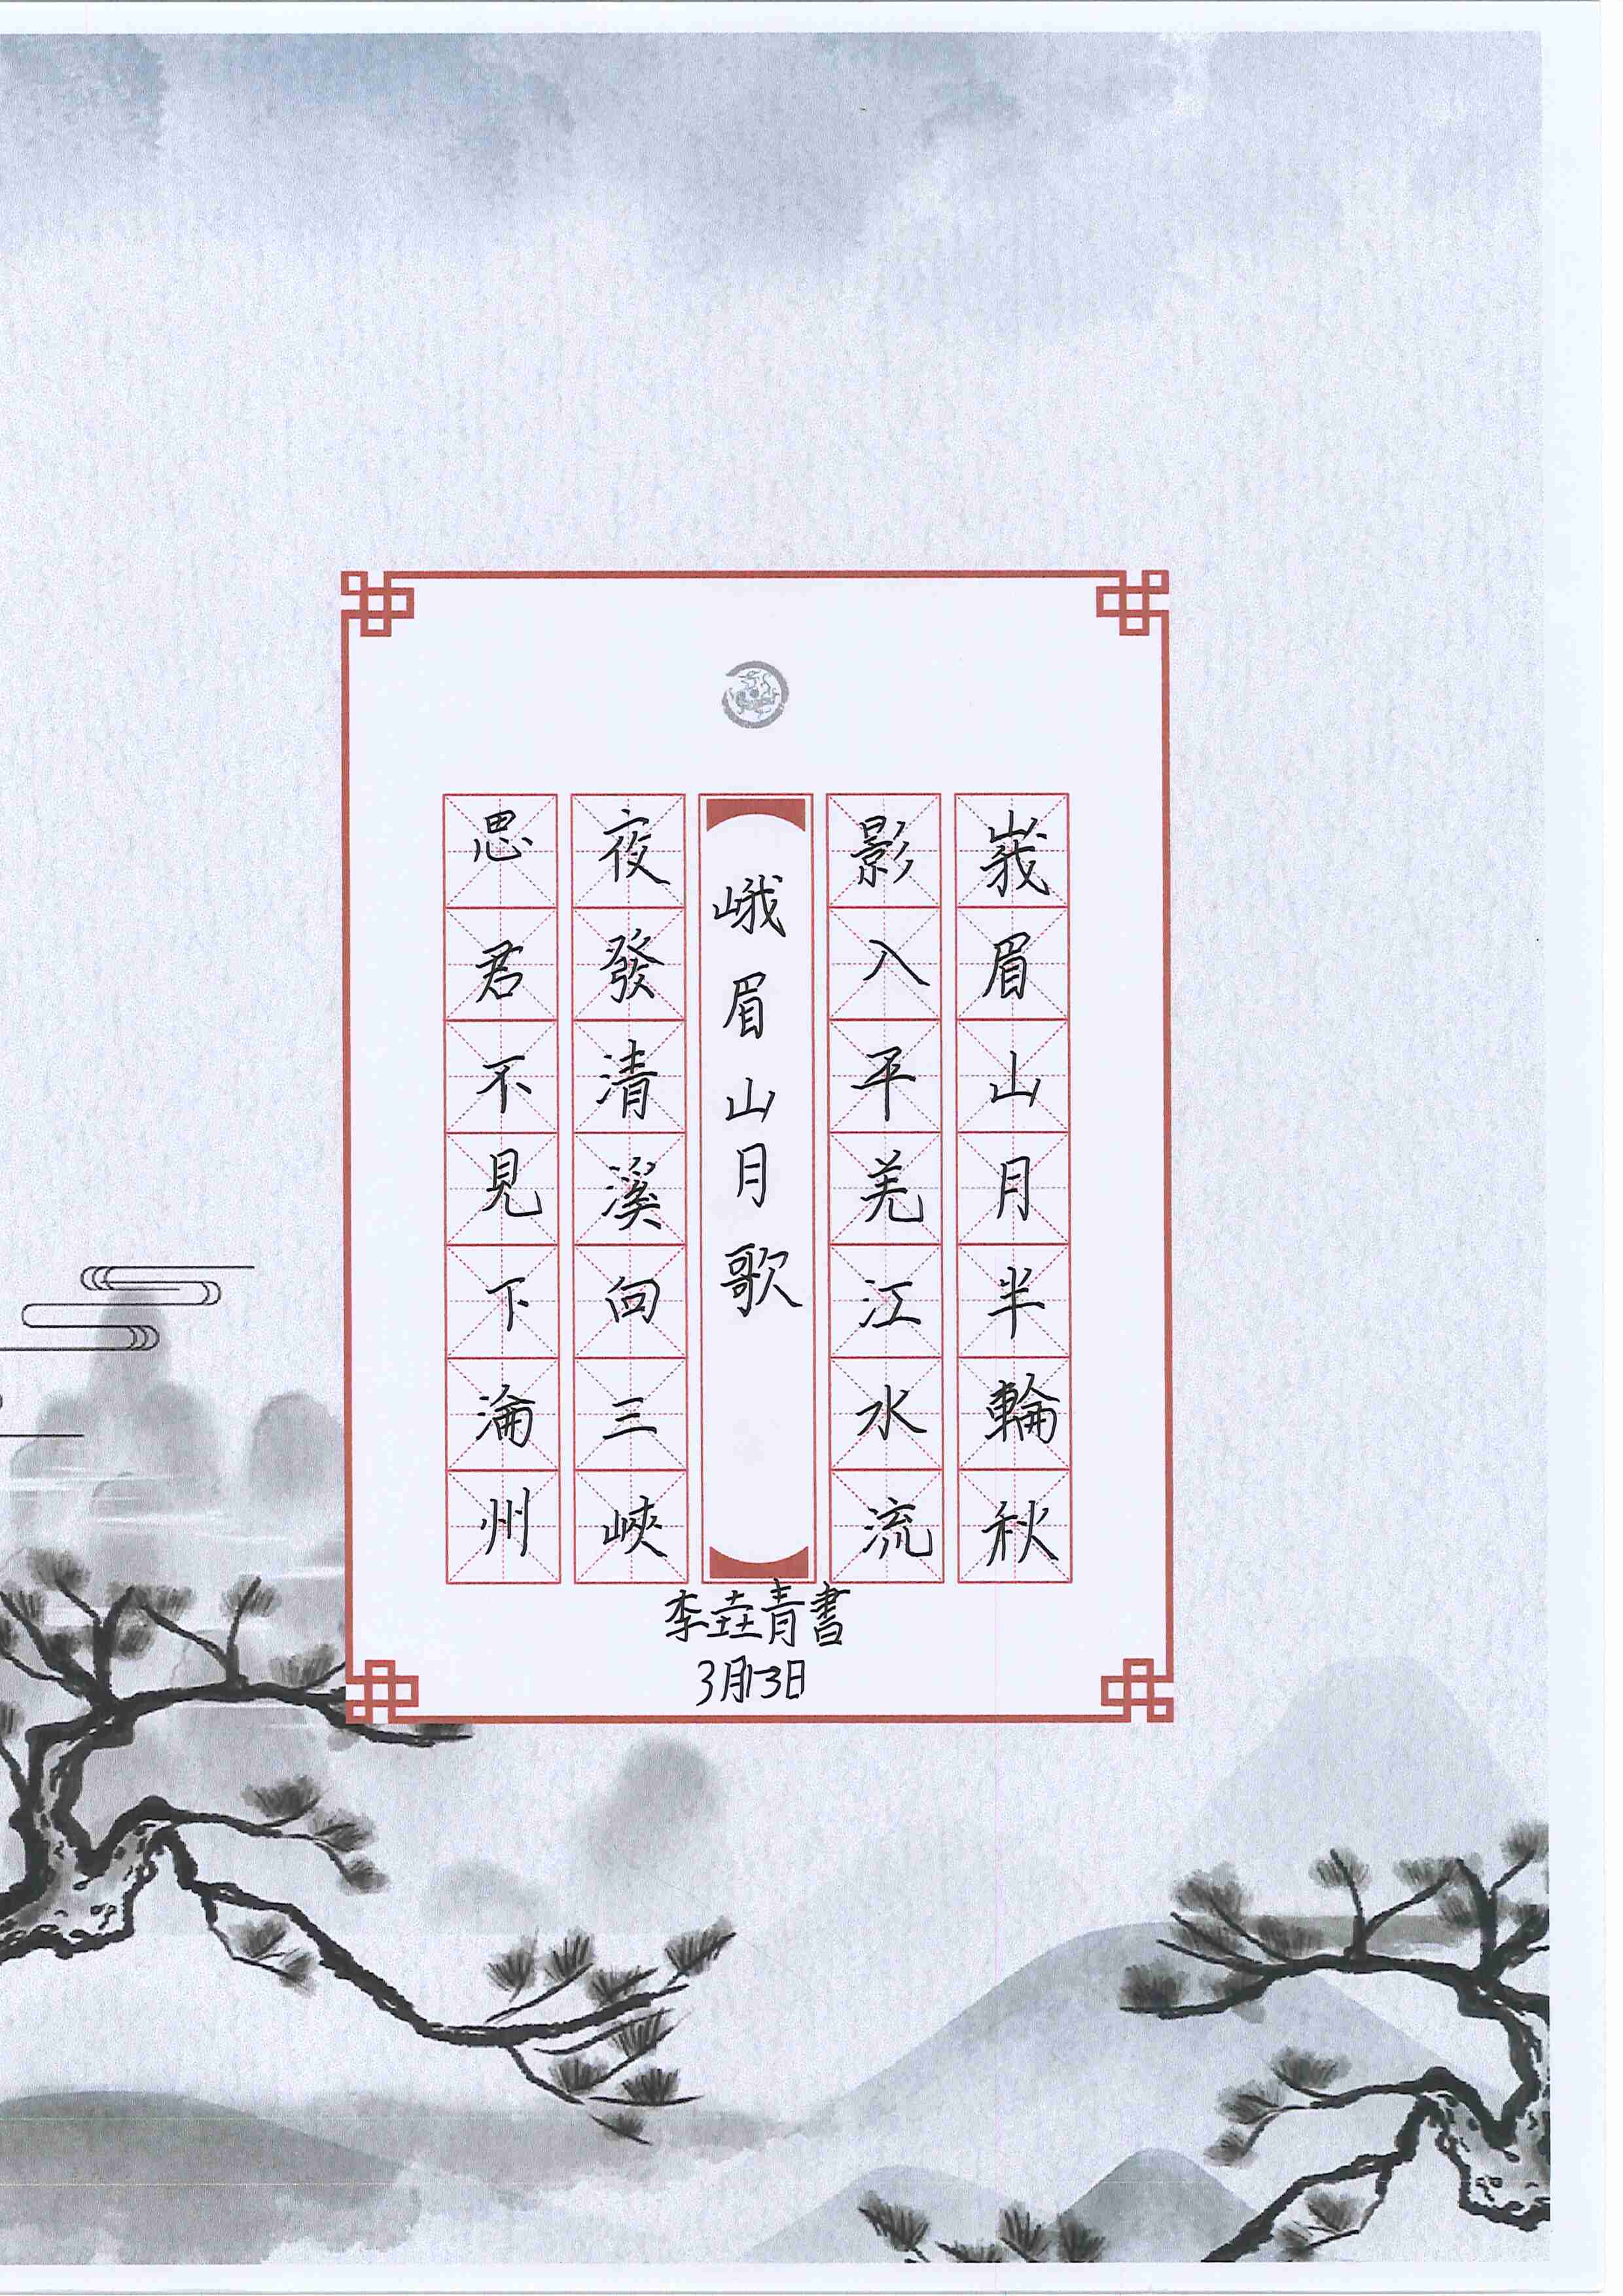 峩眉山月半輪秋
影入平羌江水流
峨眉山月歌
夜發清溪向三峽
思君不見下淪州
李垚青書
3月13日